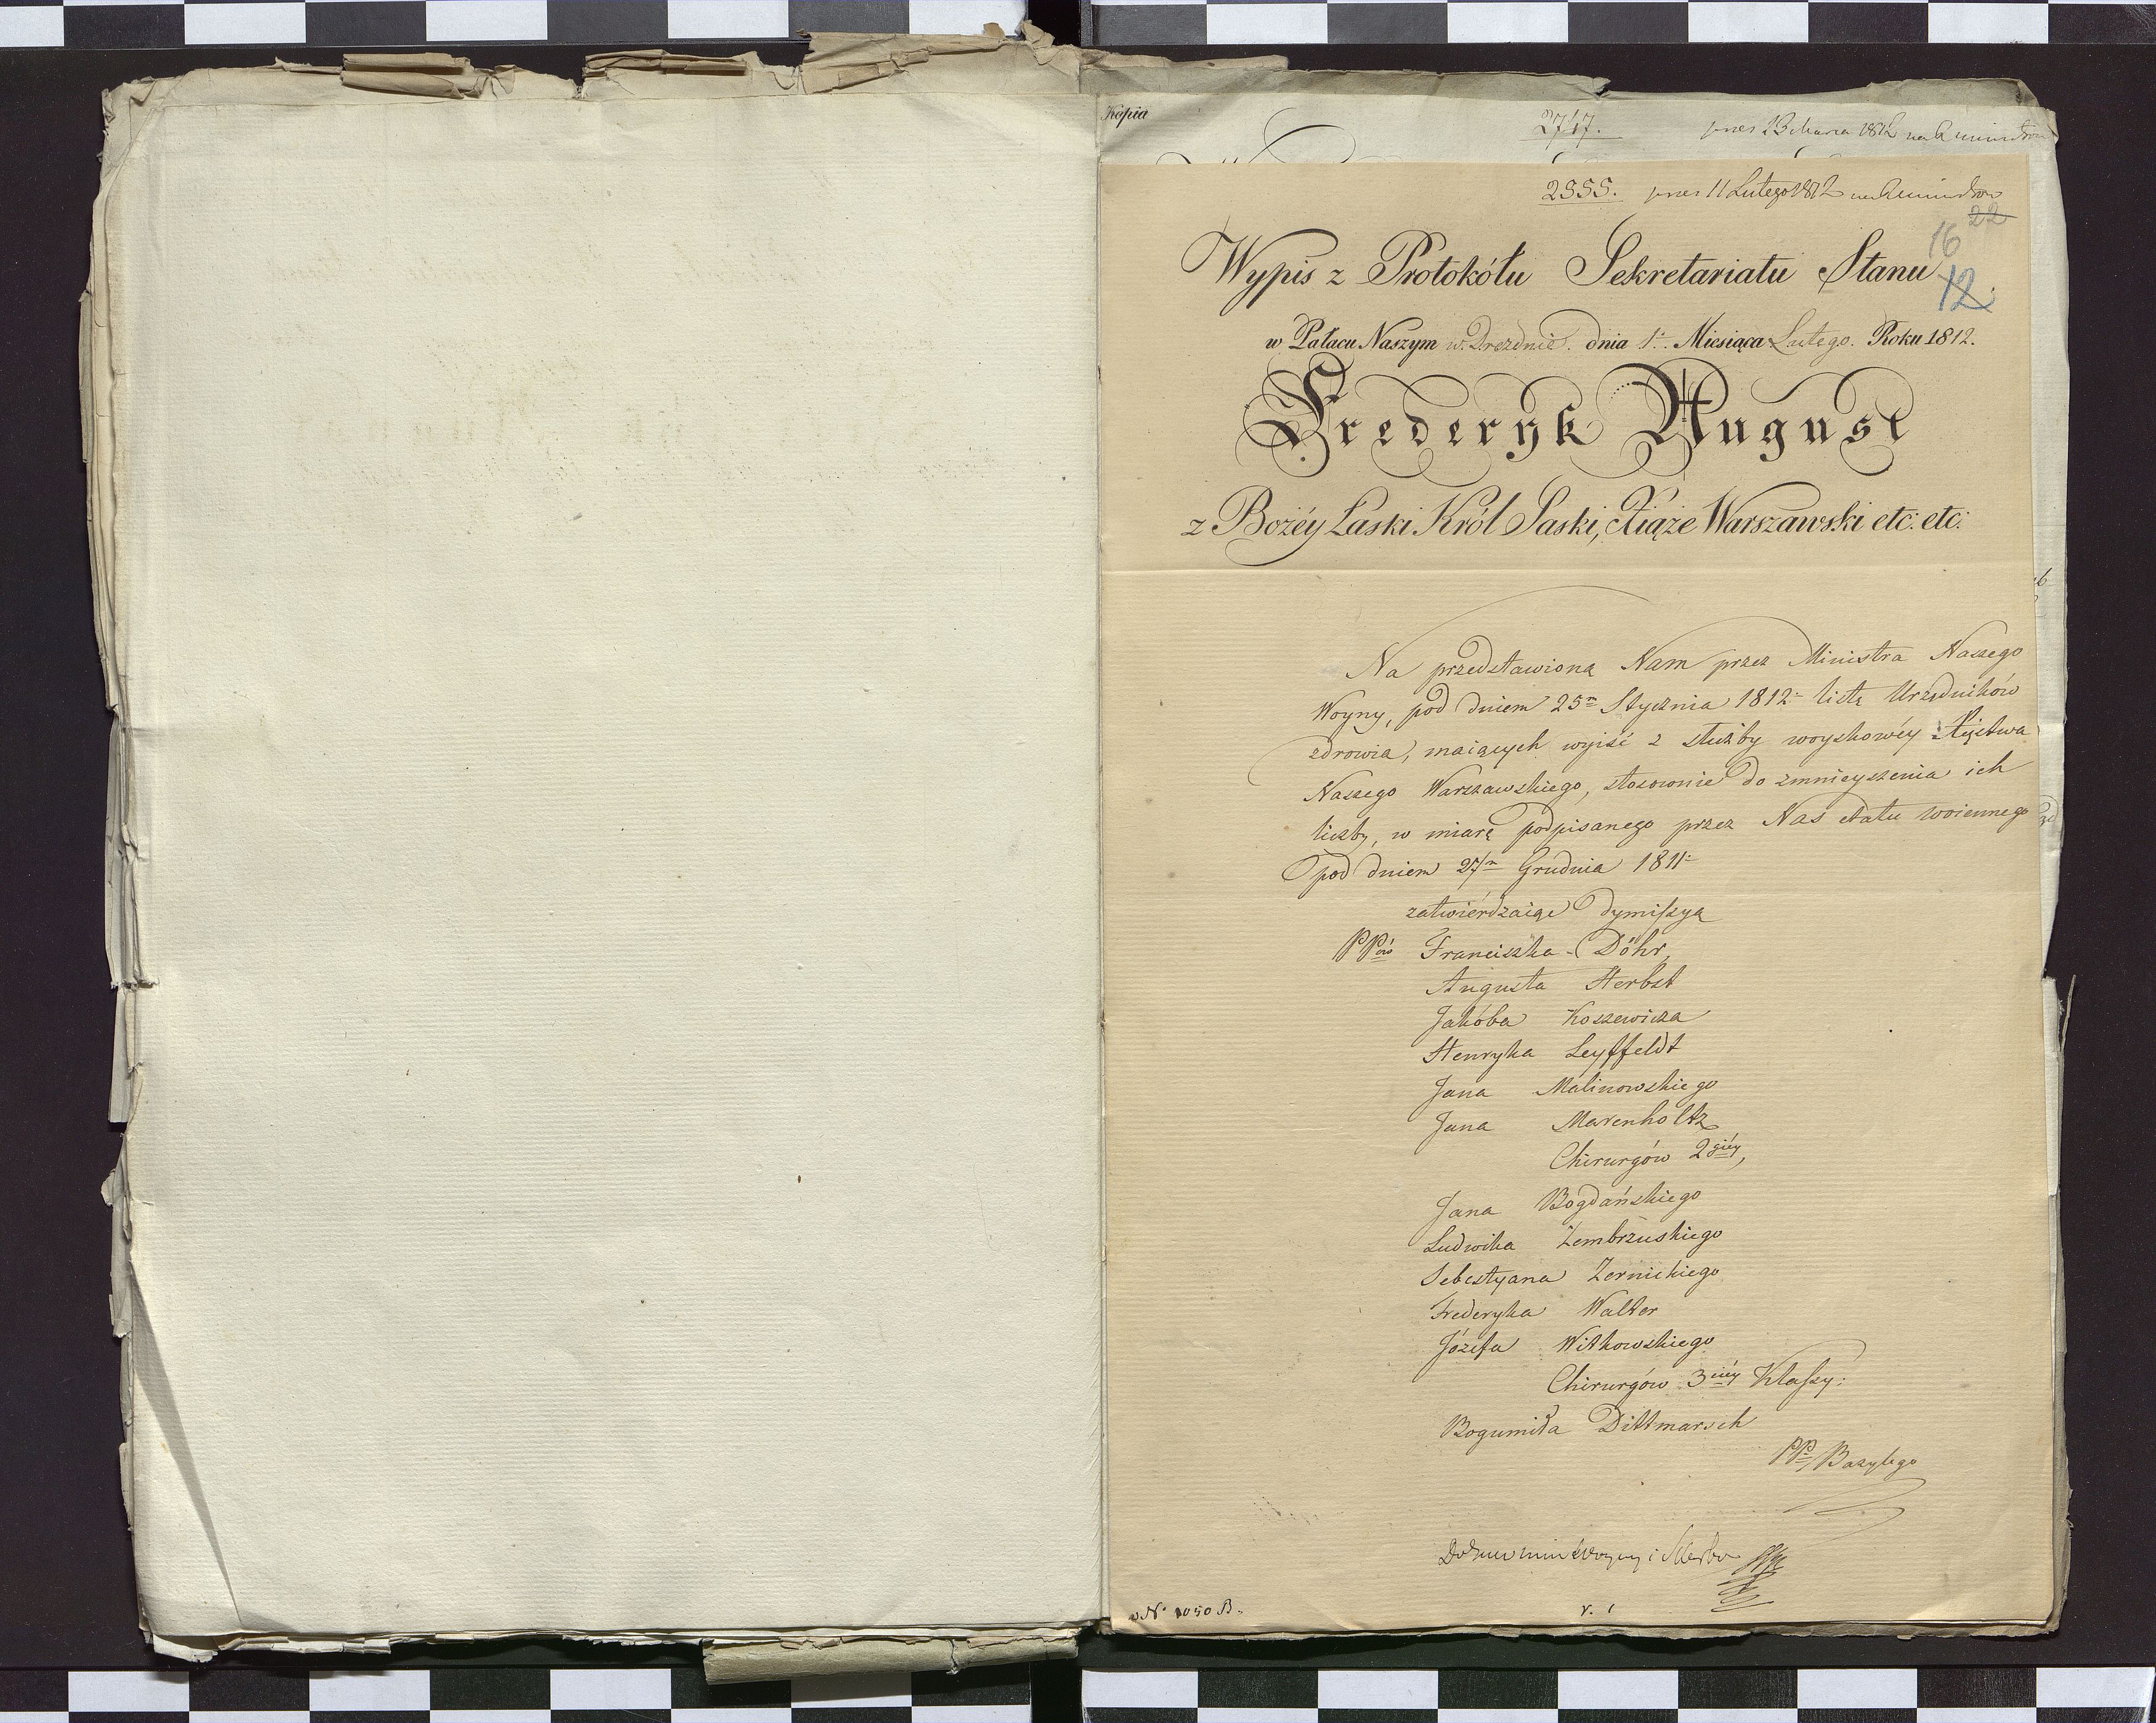 Kopia
2717. 1812
2355. 11 Lutego 1812
22
16
12.
Wypis z Protokółu Sekretariatu Stanu
w Pałacu Naszym w Dreznie. dnia 1. Miesiąca Lutego. Roku 1812.
Frederyk August
z Bożéy Łaski Król Saski, Xiąże Warszawski etc: etc:
Na przedstawioną Nam przez Ministra Naszego
Woyny, pod dniem 25m Stycznia 1812 listę Urzędników
zdrowia, maiących wyiść z służby woyskowéy Xięstwa
Naszego Warszawskiego, stosownie do zmnieyszenia ich
liczby, w miarę podpisanego przez Nas etatu woiennego
pod dniem 27m Grudnia 1811
zatwierdzaiąc dymissyą
PPów Franciszka Döhr,
Augusta Herbst
Jakóba Koszewicza
Henryka Leyffeldt
Jana Malinowskiego
Jana Marenholtz
Chirurgów 2giéy,
Jana Bogdańskiego
Ludwika Zembrzuskiego
Sebestyana Zernickiego
Frederyka Walter
Józefa Witkowskiego
Chirurgów 3ciéy Klassy:
Bogumiła Dittmarsch
PP Bazylego
Woyny i Skarbu
N. 1050 B.
v. 1